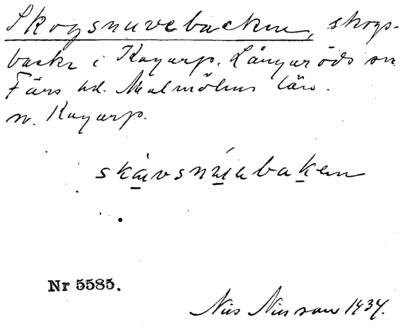 Skogsnuvebacken, skogs-
backe i Kagarp, Långaröds sn
Färs hd. Malmöhus län.
nv. Kagarp.
skavsnúabaken
Nr 5585.
Nils Nilsson 1934.